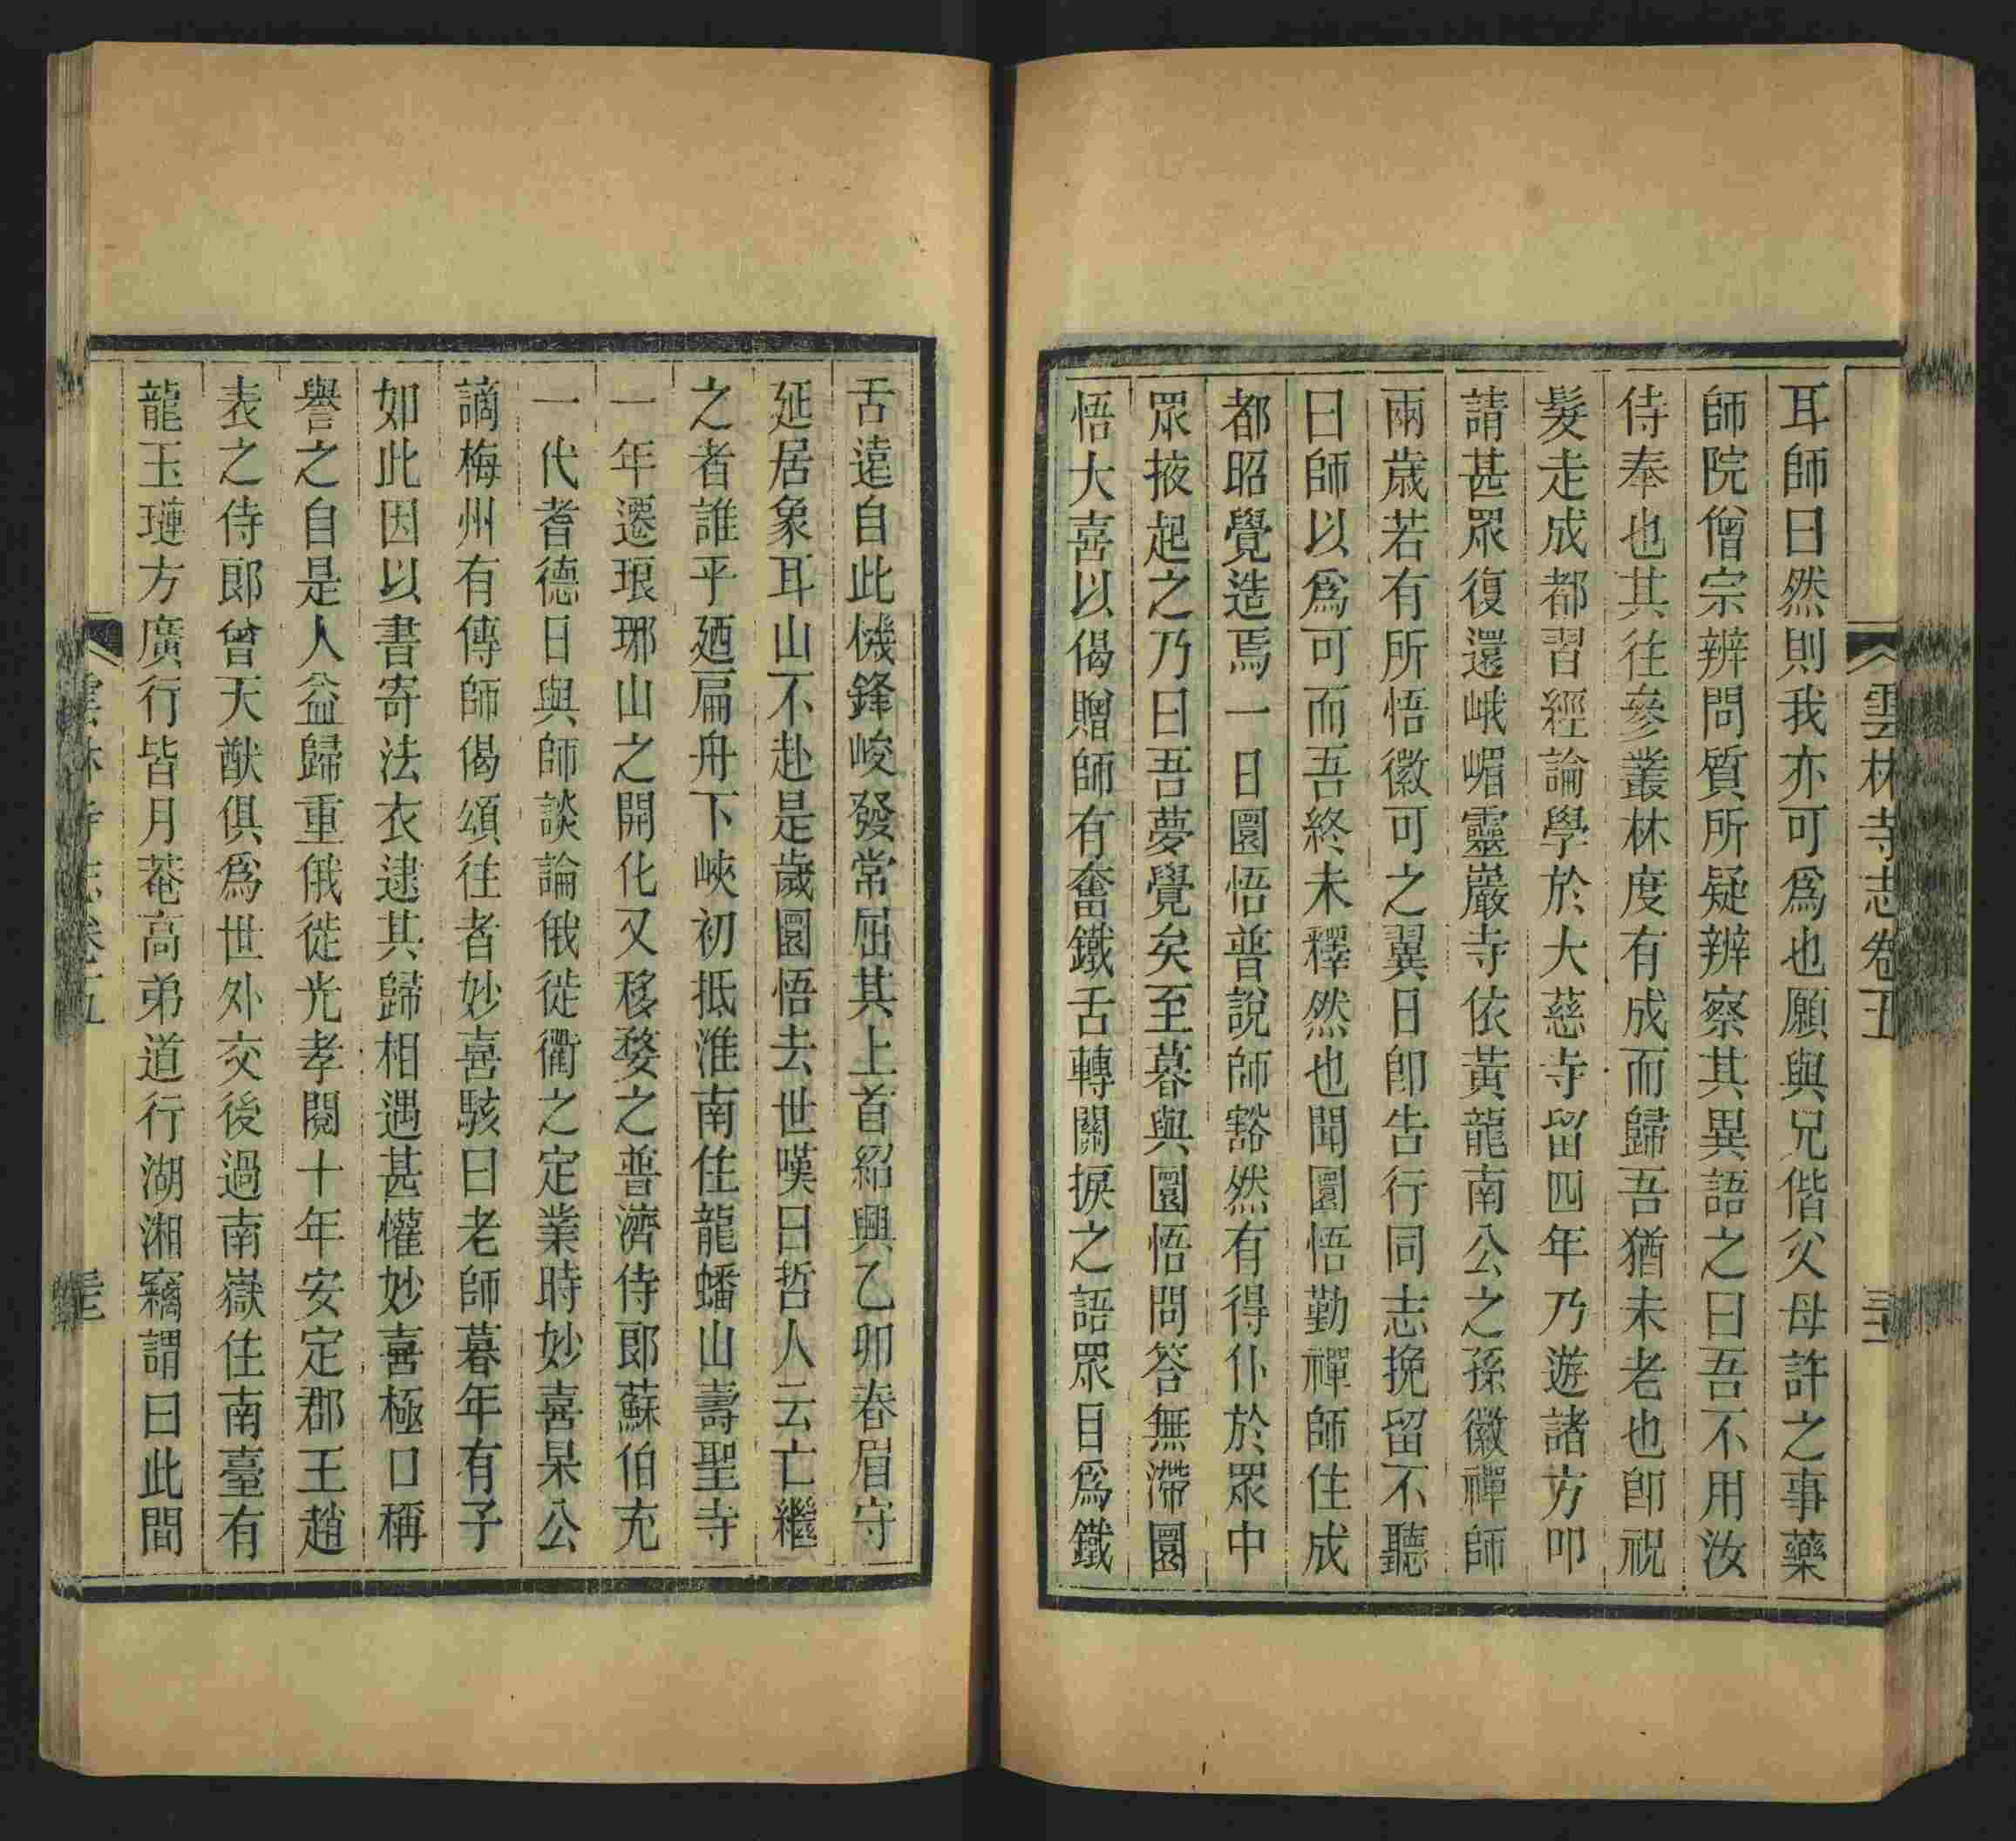 雲林寺志卷五
耳師曰然則我亦可爲也願與兄偕父母許之事藥
師院僧宗辨問質所疑辨察其異語之曰吾不用汝
侍奉也其往參叢林度有成而歸吾猶未老也卽祝
髮走成都習經論學於大慈寺留四年乃遊諸方叩
請甚眾復還峨嵋靈巖寺依黃龍南公之孫徽禪師
兩歲若有所悟徽可之翼日卽告行同志挽留不聽
曰師以爲可而吾終未釋然也聞圜悟勤禪師住成
都昭覺造焉一日圜悟普說師豁然有得仆於眾中
眾掖起之乃曰吾夢覺矣至暮與圜悟問答無滯圜
悟大喜以偈贈師有奮鐵舌轉關捩之語眾目爲鐵
舌遠自此機鋒峻發常屈其上首紹興乙卯春眉守
延居象耳山不赴是歲圜悟去世嘆曰哲人云亡繼
之者誰乎廼扁舟下峽初抵淮南住龍蟠山壽聖寺
一年遷琅琊山之開化又移婺之普濟侍郎蘇伯充
一代耆德日與師談論俄徙衢之定業時妙喜杲公
謫梅州有傳師偈頌往者妙喜駭曰老師暮年有子
如此因以書寄法衣逮其歸相遇甚懽妙喜極口稱
譽之自是人益歸重俄徙光孝閱十年安定郡王趙
表之侍郎曾天猷俱爲世外交後過南嶽住南臺有
龍王璉方廣行皆月菴高弟道行湖湘竊謂曰此間